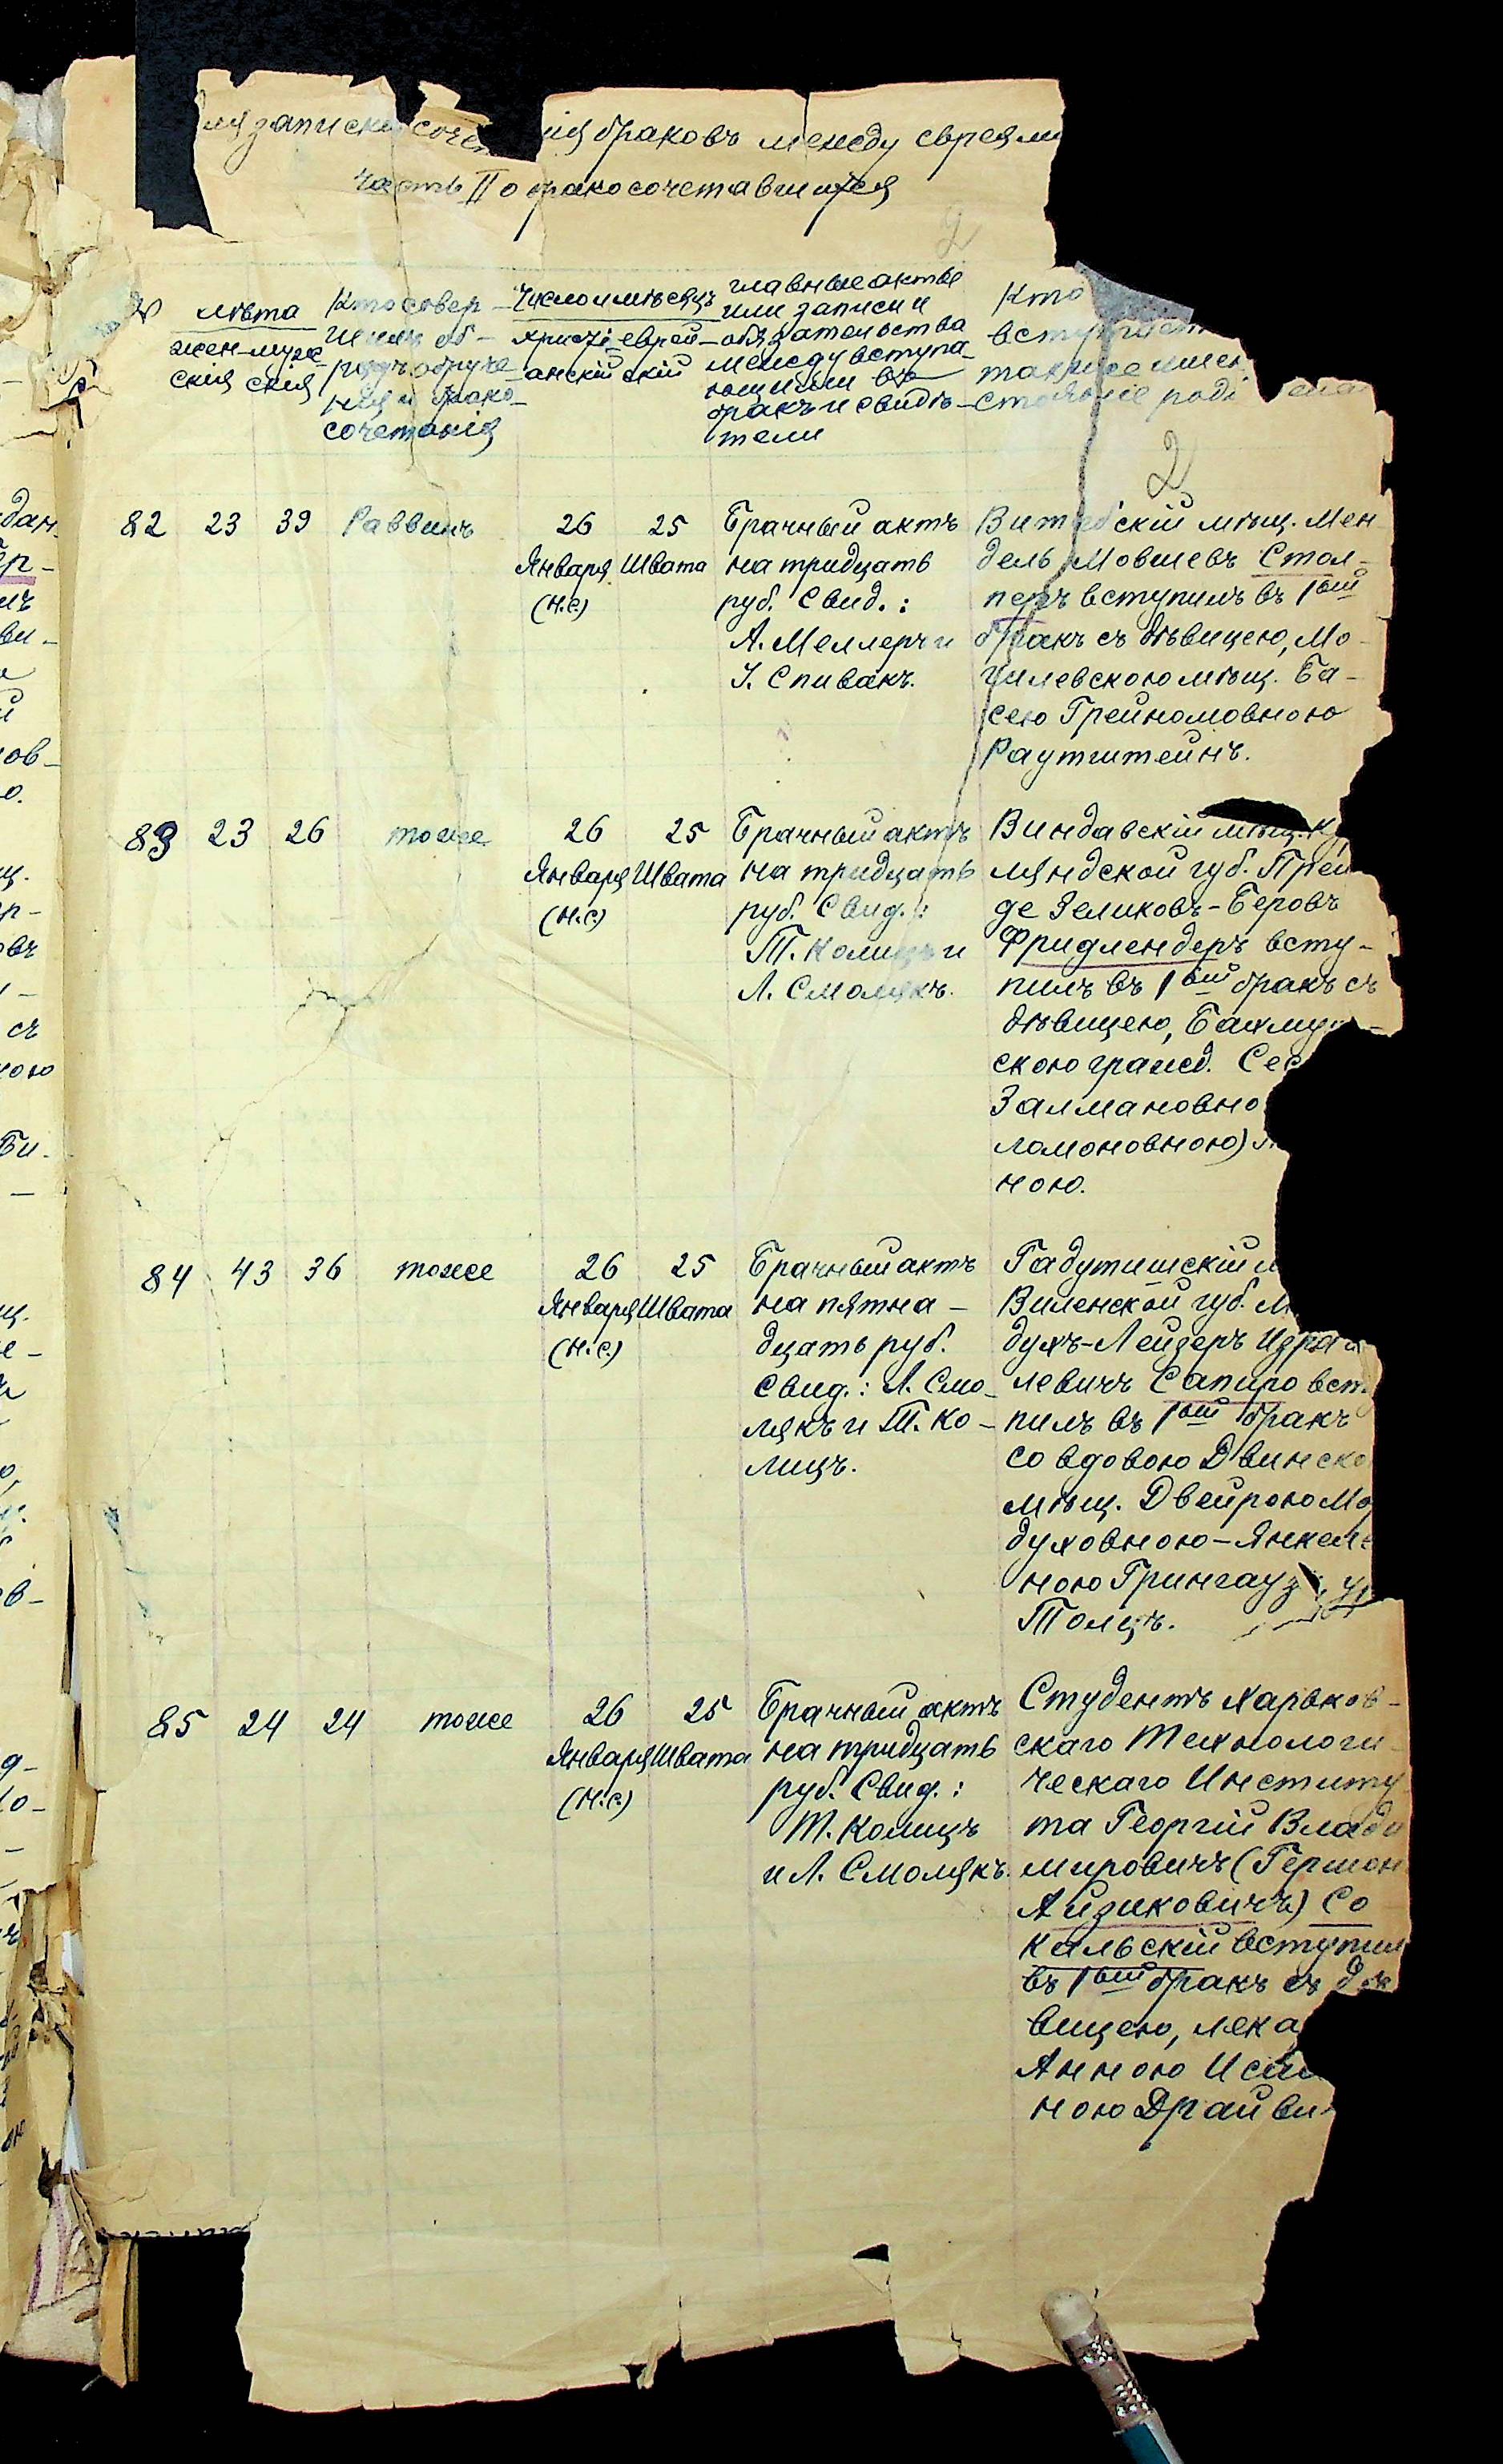 ля записки сочет нія браковъ между евреями
часть II о бракосочетавшихся
2
№
лѣта
жен- муж-
скія скія
Кто совер-
шилъ об-
рядъ обруче-
нія и брако-
сочетанія
Число и мѣсяцъ
христі- еврей-
анскій скій
главные акты
или записи и
обязательства
между вступа-
ющими въ
бракъ и свидѣ-
тели
Кто
вступает
также имен
стояніе роди
2
82 23 39 Раввинъ
26 Января (н.с.)
25 Швата
Брачный актъ
на тридцать
руб. Свид.:
А. Меллеръ и
У. Спивакъ.
Витебскій мѣщ. Мен
дель Мовшевъ Стол-
перъ вступилъ въ 1ый
бракъ съ дѣвицею, Мо-
гилевскою мѣщ. Ба-
сею Грейномовною
Раутштейнъ.
83 23 26 тоже
26 Января (н.с.)
25 Швата
Брачный актъ
на тридцать
руб. Свид.:
Т. Колицъ и
Л. Смолякъ.
Виндавскій мѣщ. Ку
ляндской губ. Прей
де Зеликовъ-Беровъ
Фридлендеръ всту-
пилъ въ 1ый бракъ съ
дѣвицею, Бахму
скою гражд. Сес
Залмановно
ломоновною)
ною.
84 43 36 тоже
26 Января (н.с.)
25 Швата
Брачный актъ
на пятна-
дцать руб.
Свид.: Л. Смо-
лякъ и Т. Ко-
лицъ.
Гадутишскій м
Виленской губ. М
духъ-Лейзеръ Изра
левичъ Сапиро вст
пилъ въ 1ый бракъ
со вдовою Двинско
мѣщ. Двейрою Мо
духовною-Янкеле
ною Грингауз
Толцъ.
85 24 24 тоже
26 Января (н.с.)
25 Швата
Брачный актъ
на тридцать
руб. Свид.:
Т. Колицъ
и Л. Смолякъ.
Студентъ Харьков-
скаго Технологи-
ческаго Институ
та Георгій Влади
мировичъ (Гершон
Айзиковичъ) Со
кальскій вступил
въ 1ый бракъ съ дѣ
вицею, лека
Анною Иса
ною Драйви